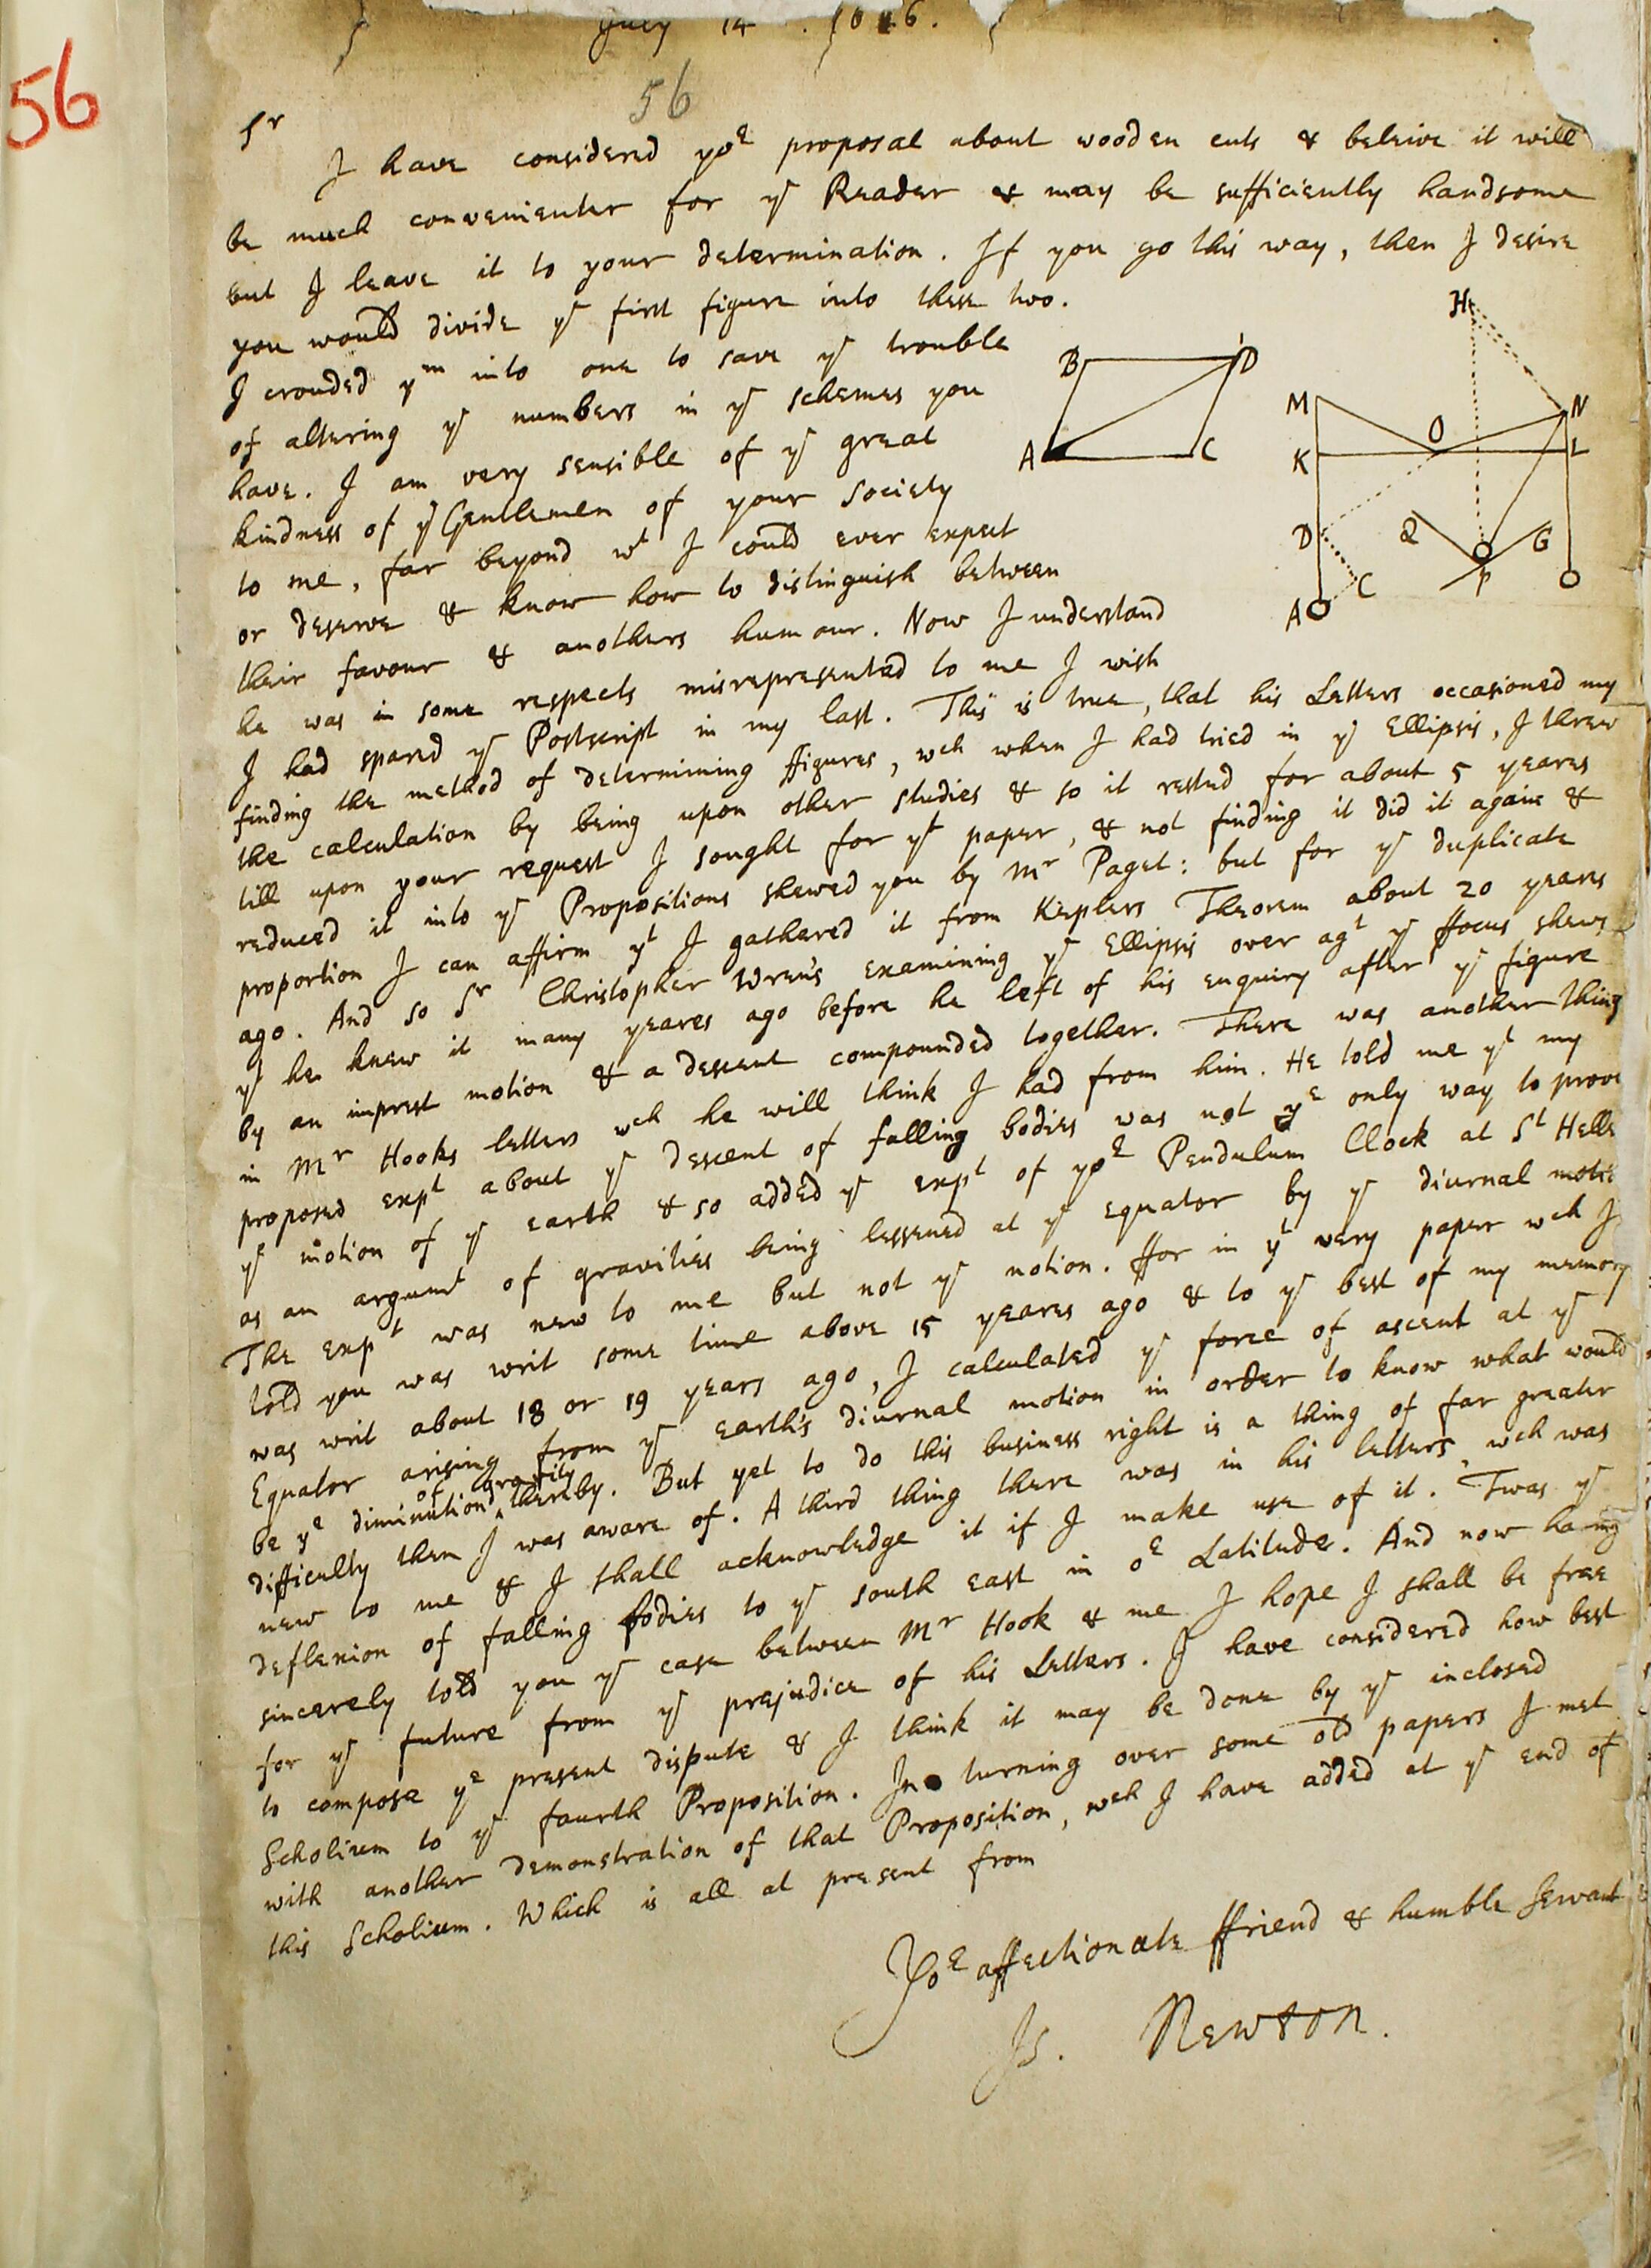 July 14. 1686.
56
56
Sr
I have considered yor proposal about wooden cuts & beleive it will
be much convenienter for ye Reader & may be sufficiently handsome
but I leave it to your determination. If you go this way, then I desire
you would divide ye first figure into these two.
I crouded ym into one to save ye trouble
of altering ye numbers in ye schemes you
have. I am very sensible of ye great
kindness of ye Gentlemen of your Society
to me, far beyond wt I could ever expect
or deserve & know how to distinguish between
their favour & anothers humour. Now I understand
he was in some respects misrepresented to me I wish
I had spared ye Postscript in my last. This is true, that his Letters occasioned my
finding the method of determining ffigures, wch when I had tried in ye Ellipsis, I threw
the calculation by being upon other studies & so it rested for about 5 yeares
till upon your request I sought for yt paper, & not finding it did it again &
reduced it into ye Propositions shewed you by Mr Paget: but for ye duplicate
proportion I can affirm yt I gathered it from Keplers Theorem about 20 yeares
ago. And so Sr Christopher Wren's examining ye Ellipsis over agt ye ffocus shews
yt he knew it many yeares ago before he left of his enquiry after ye figure
by an imprest motion & a descent compounded together. There was another thing
in Mr Hooks letters wch he will think I had from him. He told me yt my
proposed expt about ye descent of falling bodies was not ye only way to prove
ye motion of ye earth & so added ye expt of yor Pendulum Clock at St Helle
as an argumt of gravities being lessened at ye equator by ye diurnal motio
The expt was new to me but not ye notion. ffor in yt very paper wch I
told you was writ some time above 15 yeares ago & to ye best of my memory
was writ about 18 or 19 years ago, I calculated ye force of ascent at ye
Equator arising from ye earth's diurnal motion in order to know what would
be ye diminution of gravity thereby. But yet to do this business right is a thing of far greater
difficulty then I was aware of. A third thing there was in his letters, wch was
new to me & I shall acknowledge it if I make use of it. Twas ye
deflexion of falling bodies to ye south east in or Latitude. And now having
sincerely told you ye case between Mr Hook & me I hope I shall be free
for ye future from ye prejudice of his Letters. I have considered how best
to compose ye present dispute & I think it may be done by ye inclosed
Scholium to ye fourth Proposition. In turning over some old papers I met
with another demonstration of that Proposition, wch I have added at ye end of
this Scholium. Which is all at present from
Yor affectionate ffriend & humble Servant
Is. Newton.
B D
A C
H
M O N
K L
D Q G
C P
A